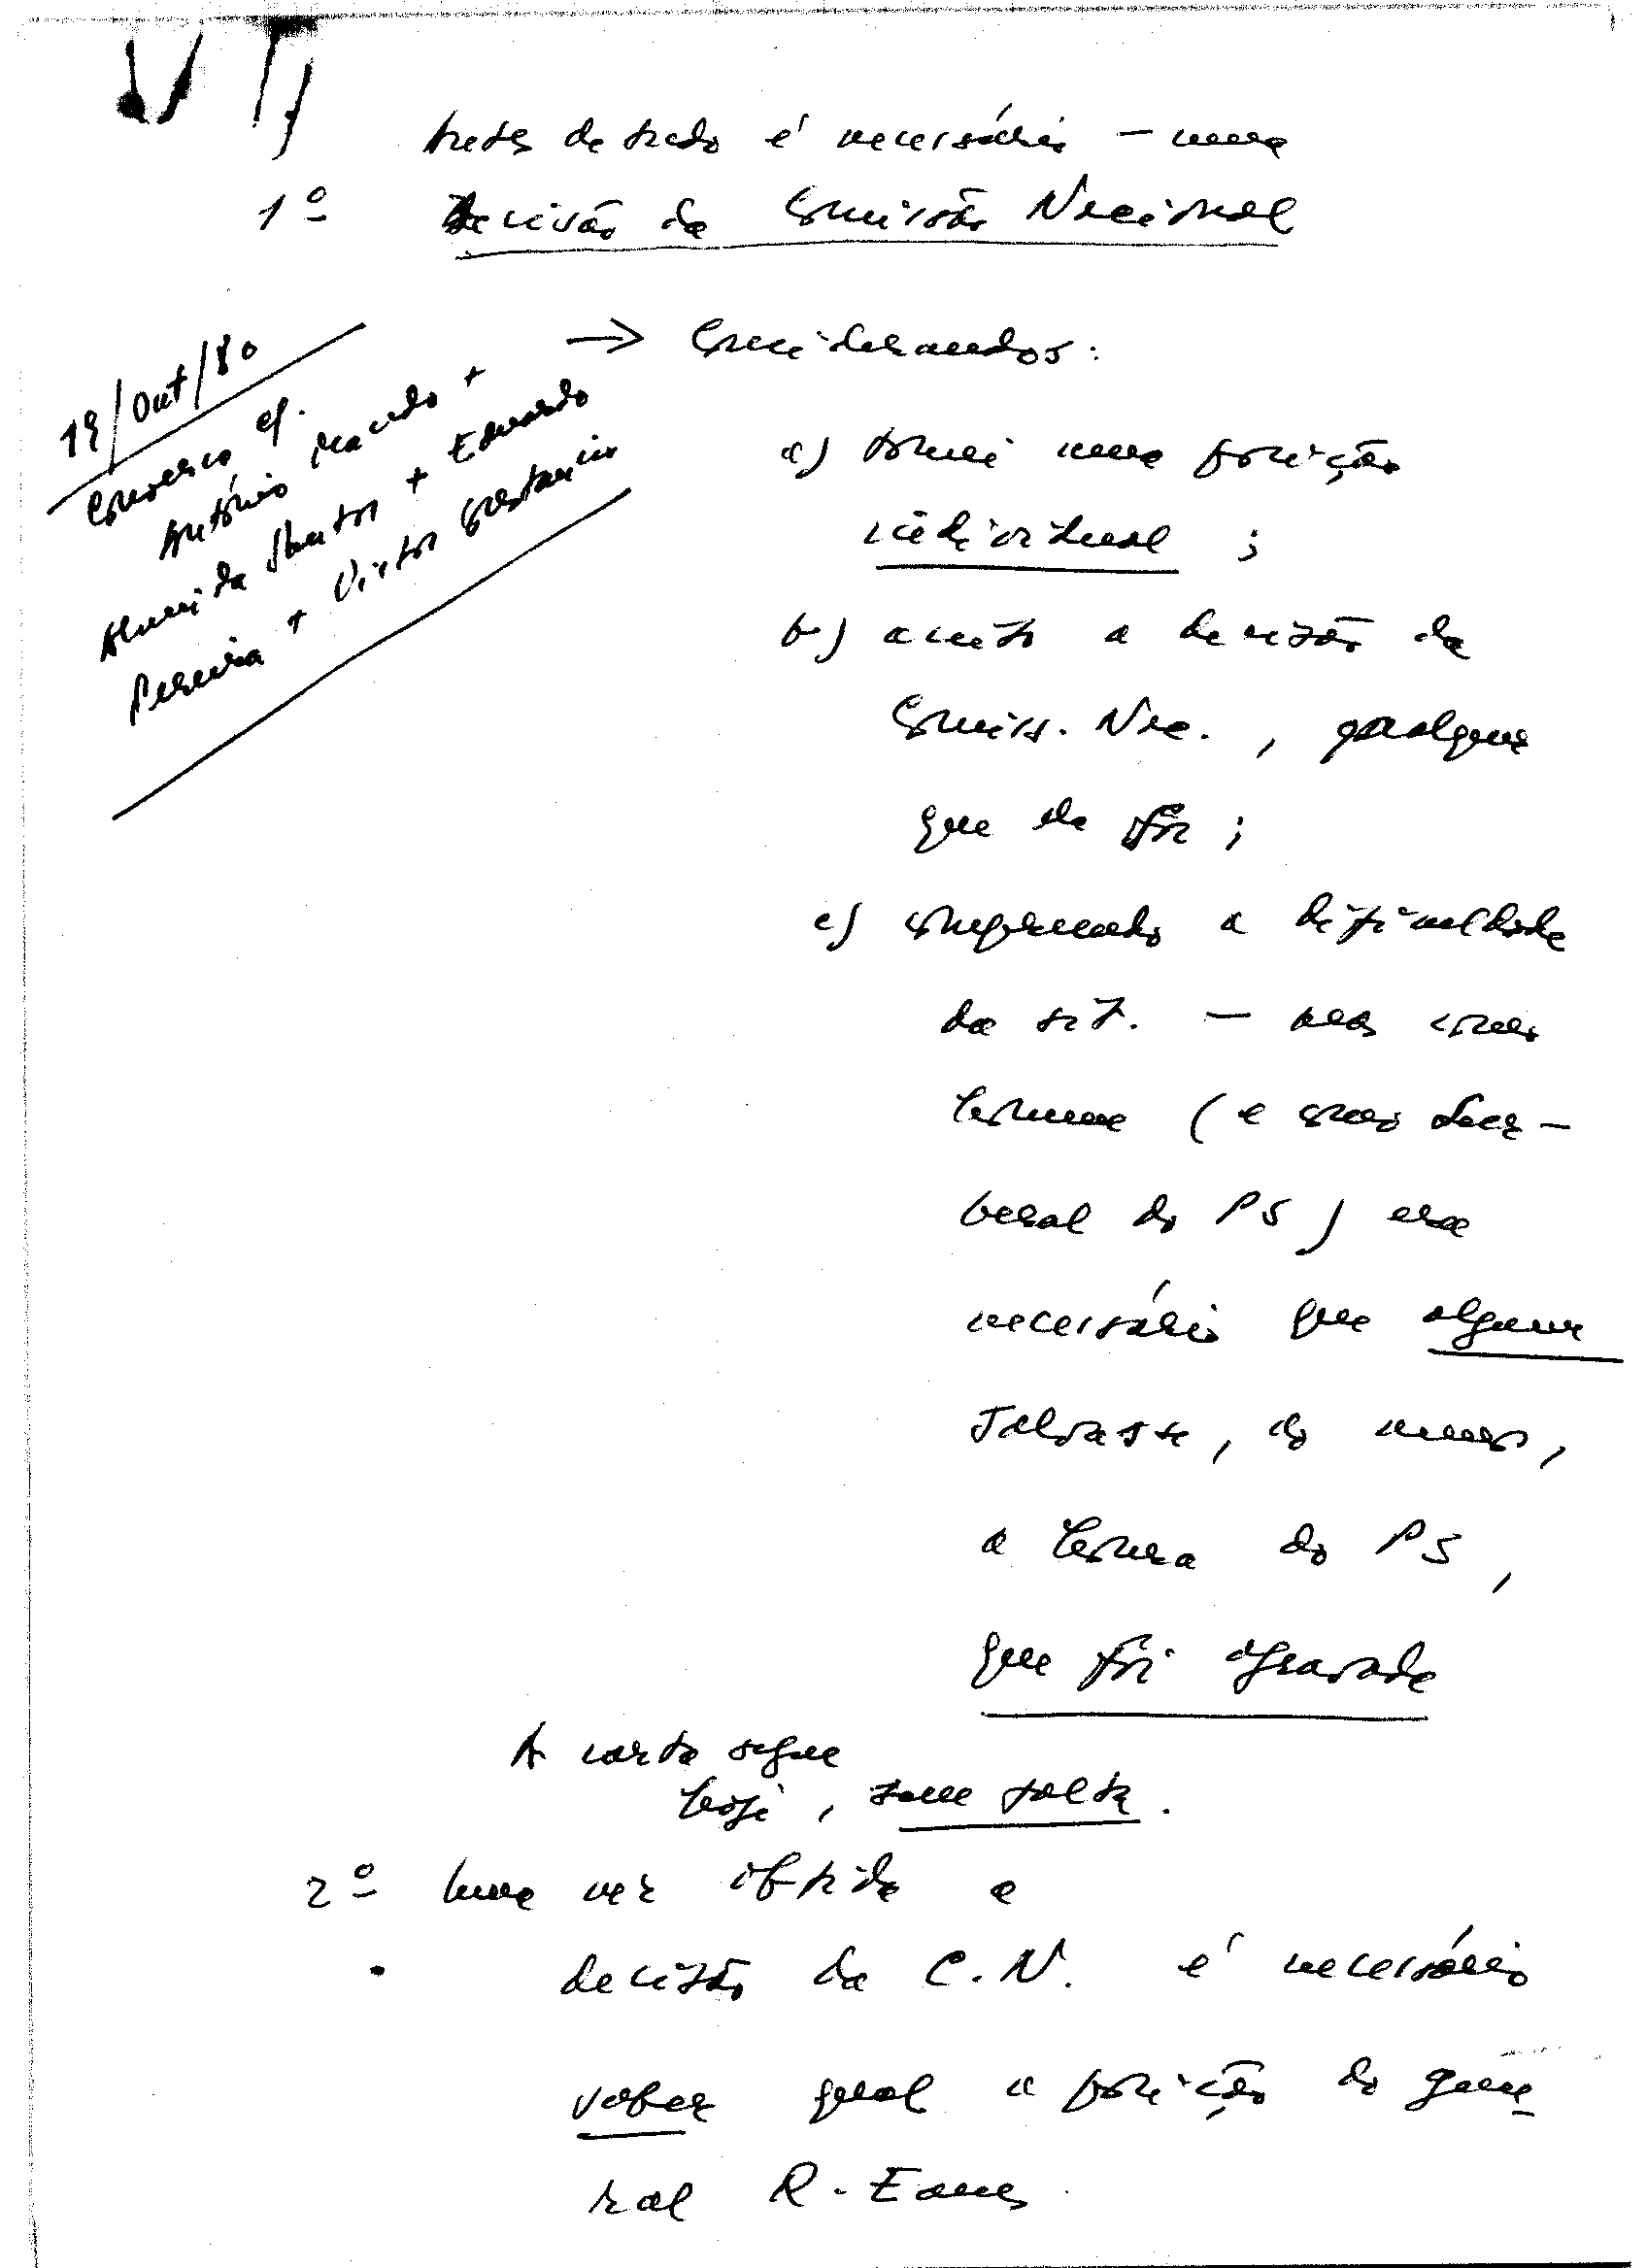 antes de tudo é necessário – uma
1º decisão da Comissão Nacional
19/Out/80
Conversa c/.
António Macedo +
Almeida Santos + Eduardo
Pereira + Victor Constancio
→ Considerandos:
a) tomei uma posição
individual ;
b) aceito a decisão da
Comiss. Nac. , qualquer
que ela for ;
c) compreendo a dificuldade
da sit. – mas como
homem (e como Secr-
Geral do PS) era
necessário que alguem
salvasse, ao menos,
a honra do PS,
que foi agravada
A carta segue
hoje, sem falta.
2º Uma vez obtida a
decisão da C.N. é necessário
saber qual a posição do gene
ral R. Eanes